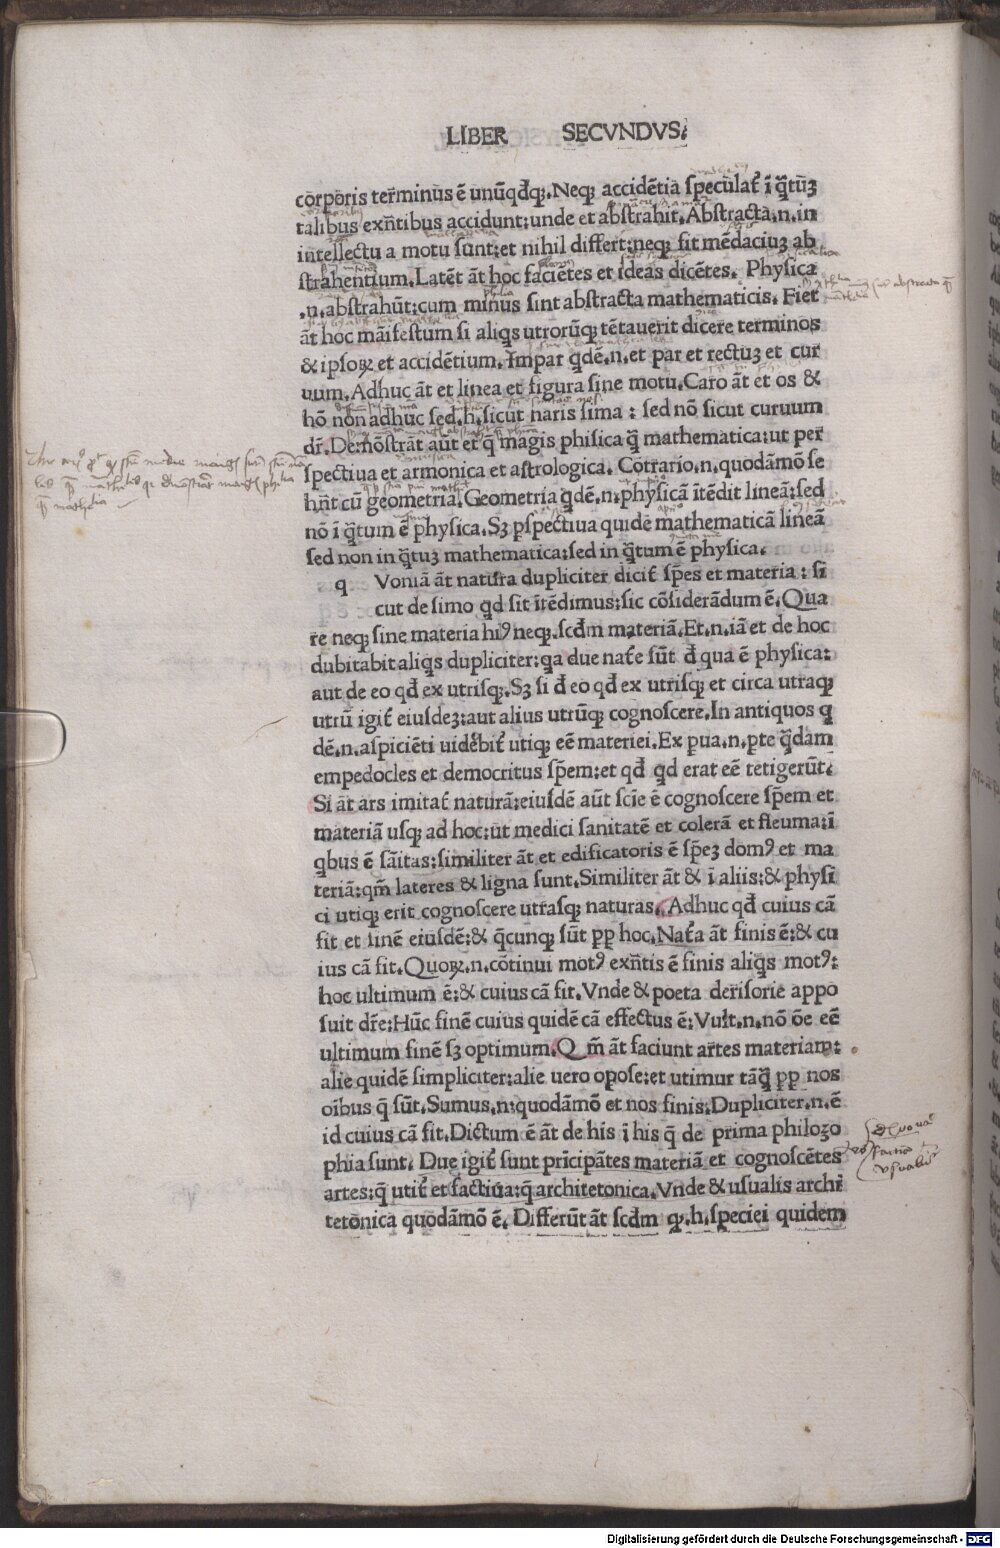 LIBER SECVNDVS.
corporis terminus ē unūqđqꝫ. Neqꝫ accidētia speculať ī q̄tūꝫ
talibus exñtibus accidunt: unde et abstrahit. Abstracta .n. in
intellectu a motu sunt: et nihil differt: neqꝫ fit mēdaciuꝫ ab
strahentium. Latēt āt hoc faciētes et ideas dicētes. Physica
.n. abstrahūt: cum minus sint abstracta mathematicis. Fiet
āt hoc māifestum si aliqs utrorūqꝫ tētauerit dicere terminos
& ipsoꝝ et accidētium. Impar qdē .n. et par et rectuꝫ et cur
uum. Adhuc āt et linea et figura sine motu. Caro āt et os &
hō non adhuc sed .h. sicut naris sima : sed nō sicut curuum
dr̄. Demōstrāt aūt et q̄ magis phisica q̄ mathematica: ut per
spectiua et armonica et astrologica. Cōtrario .n. quodāmō se
hñt cū geometria. Geometria qdē .n. physicā ītēdit lineā: sed
nō ī q̄tum ē physica. Sꝫ ꝑspectiua quidē mathematicā lineā
sed non in q̄tuꝫ mathematica: sed in q̄tum ē physica.
q Voniā āt natura dupliciter diciť sp̄es et materia : si
cut de simo qd sit ītēdimus: sic cōsiderādum ē. Qua
re neqꝫ sine materia hiꝰ neqꝫ scđm materiā. Et .n. iā et de hoc
dubitabit aliqs dupliciter: qa due naťe sūt đ qua ē physica:
aut de eo qđ ex utrisqꝫ. Sꝫ si đ eo qđ ex utrisqꝫ et circa utraqꝫ
utrū igiť eiusdeꝫ: aut alius utrūqꝫ cognoscere. In antiquos q
dē .n. aspiciēti uidēbiť utiqꝫ eē materiei. Ex ꝑua .n. pte q̄dam
empedocles et democritus sp̄em: et qđ qd erat eē tetigerūt.
Si āt ars imitať naturā: eiusdē aūt scīe ē cognoscere sp̄em et
materiā usqꝫ ad hoc: ut medici sanitatē et colerā et fleuma: ī
qbus ē sāitas: similiter āt et edificatoris ē sp̄eꝫ domꝰ et ma
teriā: qm̄ lateres & ligna sunt. Similiter āt & ī aliis: & physi
ci utiqꝫ erit cognoscere utrasqꝫ naturas. Adhuc qđ cuius cā
fit et finē eiusdē: & q̄cunqꝫ sūt ꝓp hoc. Naťa āt finis ē: & cu
ius cā fit. Quoꝝ .n. cōtinui motꝰ exñtis ē finis aliqs motꝰ:
hoc ultimum ē: & cuius cā fit. Vnde & poeta derisorie appo
suit dr̄e: Hūc finē cuius quidē cā effectus ē: Vult .n. nō ōe eē
ultimum finē sꝫ optimum. Q m̄ āt faciunt artes materiam:
alie quidē simpliciter: alie uero opose: et utimur tāq̄ ꝓp nos
oībus q̄ sūt. Sumus .n: quodāmō et nos finis. Dupliciter .n. ē
id cuius cā fit. Dictum ē āt de his ī his q̄ de prima philoꝫo
phia sunt. Due igiť sunt prīcipātes materiā et cognoscētes
artes: q̄ utiť et factiua: q̄ architetonica. Vnde & usualis archi
tetonica quodāmō ē. Differūt āt scđm qꝫ .h. speciei quidem
Digitalisierung gefördert durch die Deutsche Forschungsgemeinschaft - DFG